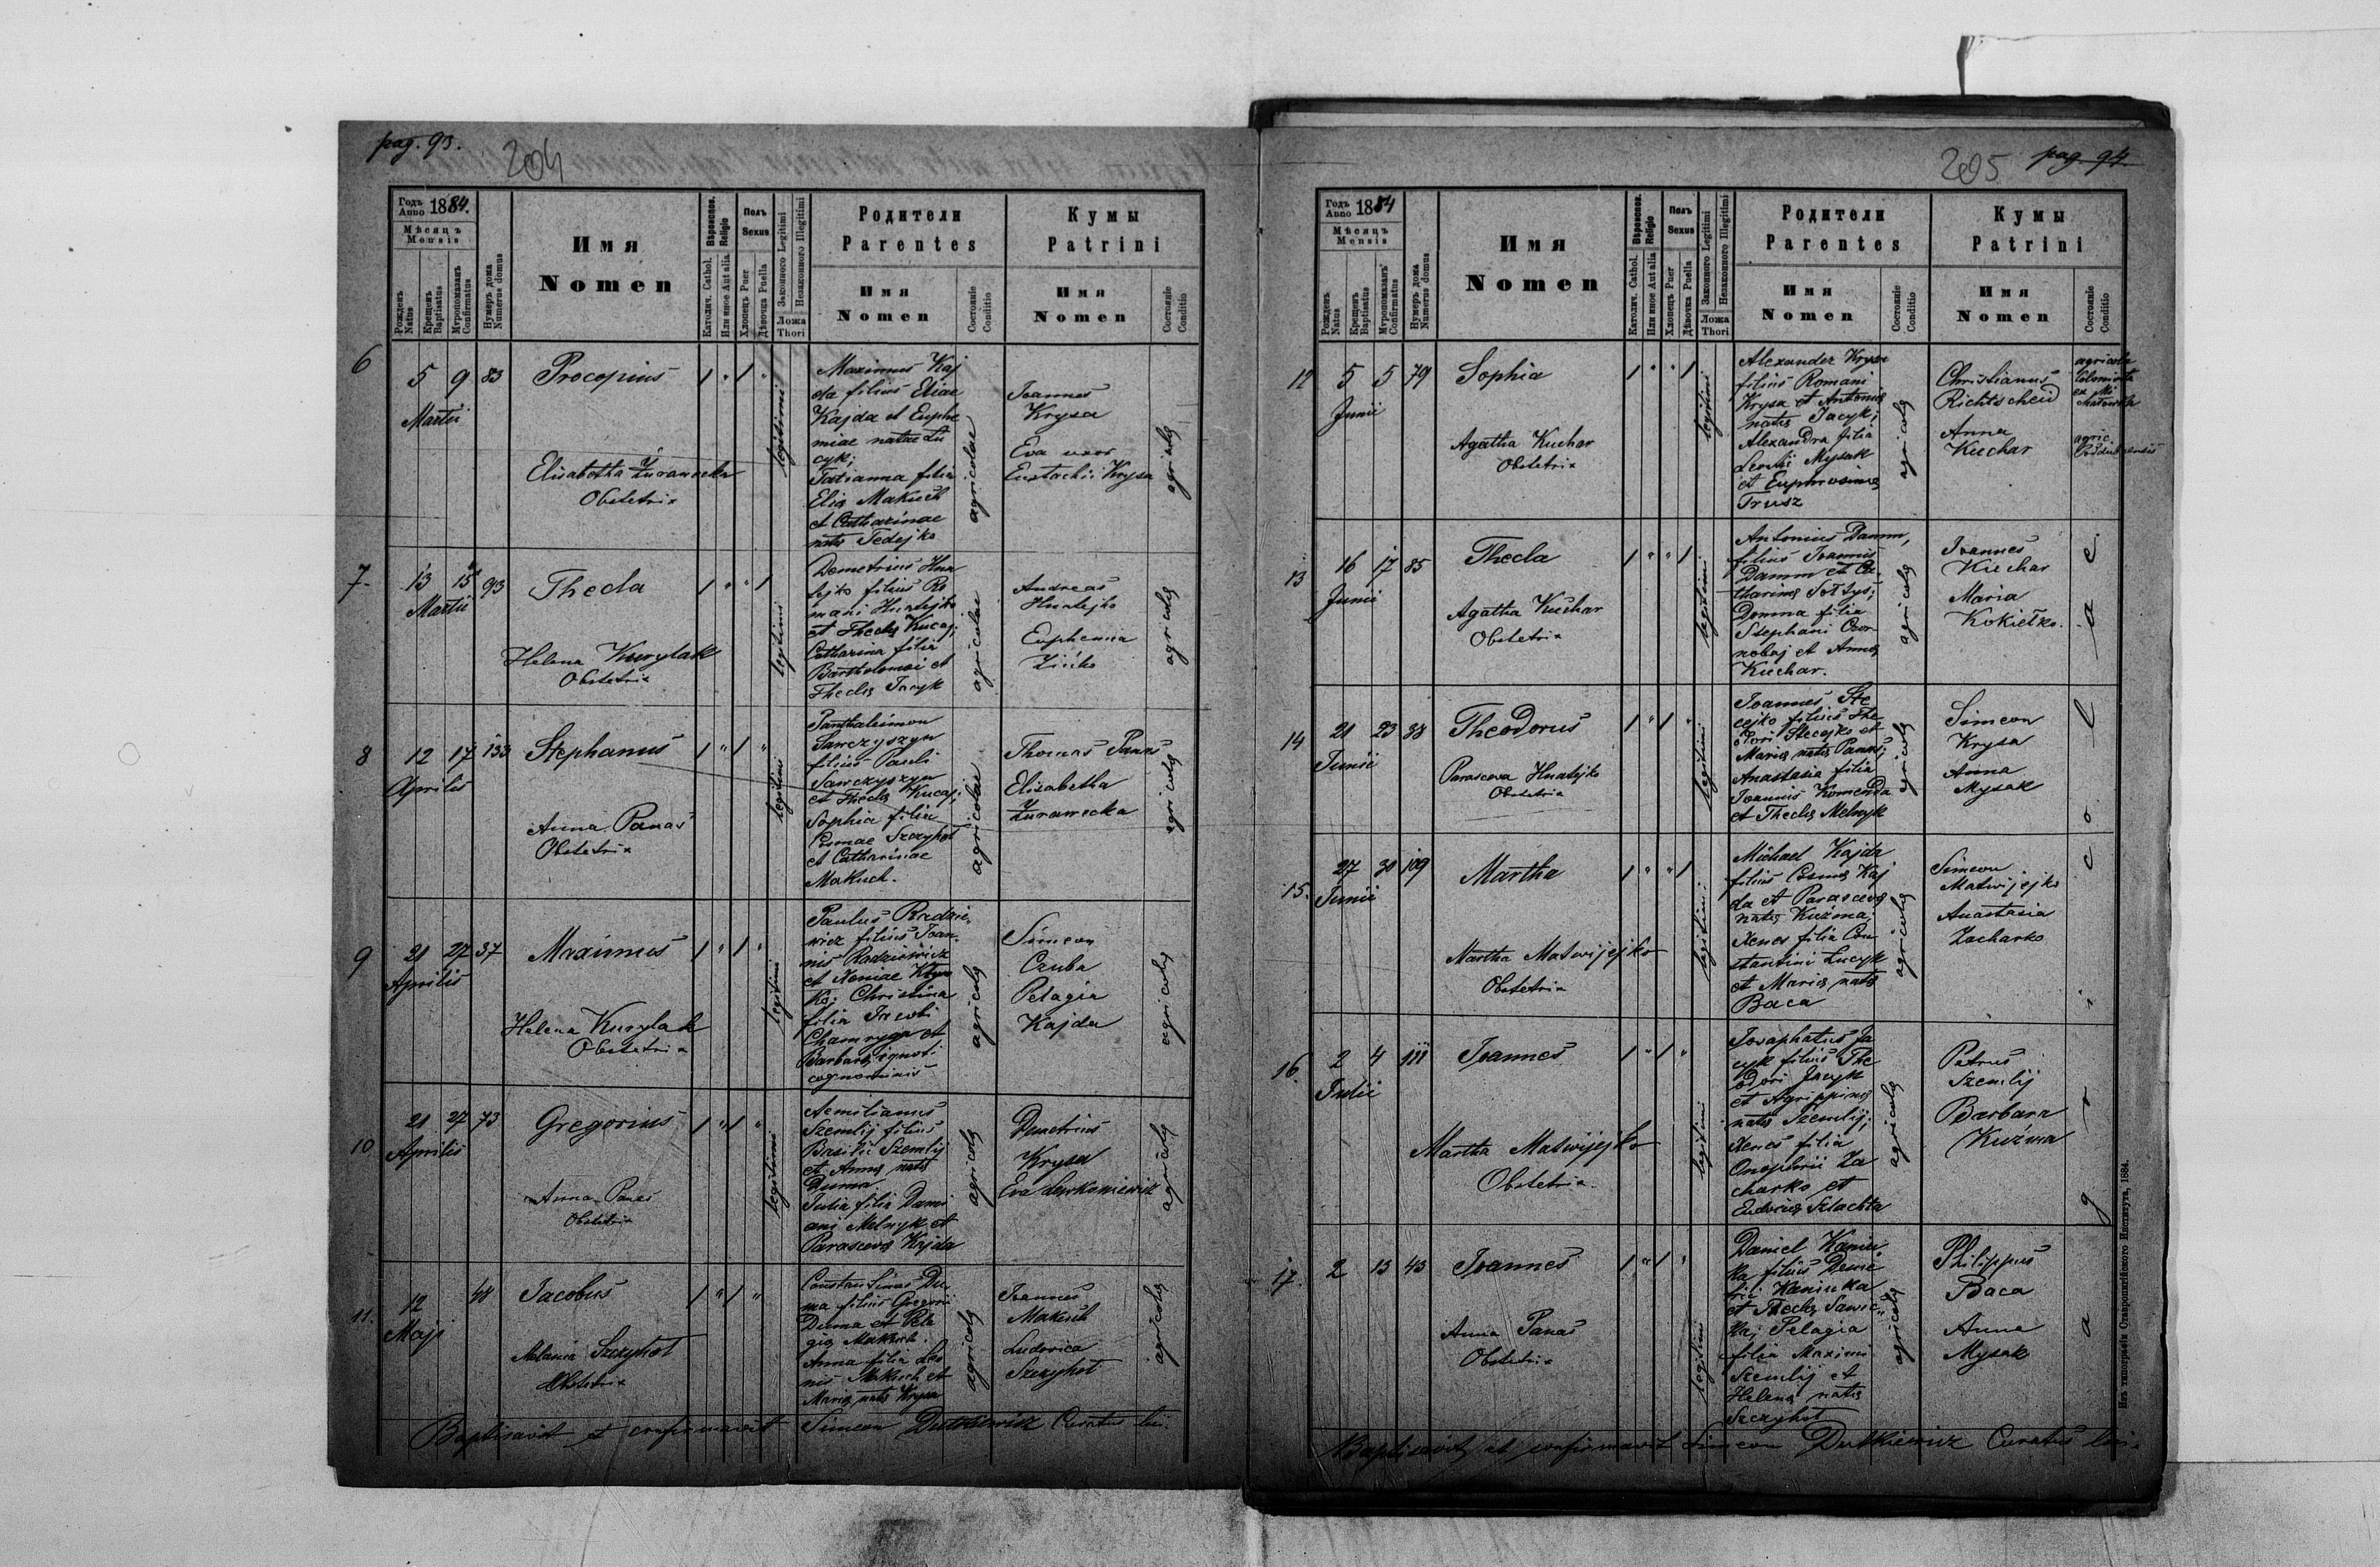 pag. 93.
204
Годъ
Anno 1884.
Мѣсяцъ
Mensis
Рожденъ
Natus
Крещенъ
Baptisatus
Муропомазанъ
Confirmatus
Нумеръ дома
Numerus domus
Имя
Nomen
Вѣроиспов.
Religio
Католич. Cathol.
Или иное Aut alia
Полъ
Sexus
Хлопецъ Puer
Дѣвочка Puella
Законного Legitimi
Незаконного Illegitimi
Ложа
Thori
Родители
Parentes
Имя
Nomen
Состояніе
Conditio
Кумы
Patrini
Имя
Nomen
Состояніе
Conditio
6
5 9 83
Martii
Procopius
Elisabetha Żurawecka
Obstetrix
legitimi
Maximus Kaj
da filius Eliae
Kajda et Euphe
miae natae Lu
cyk;
Tatianna filia
Elia Makuch
et Catharinae
nata Fedejko
agricolae
Joannes
Krysa
Eva uxor
Eustachii Krysa
agricola
7.
13 15 93
Martii
Thecla
Helena Kurylak
Obstetrix
legitimi
Demetrius Hna
tejko filius Ro
mani Hnatejko
et Thecla Kucaj;
Catharina filia
Bartholomei et
Thecla Jacyk
agricolae
Andreas
Hnatejko
Euphemia
agricola
8
12 17 133
Aprilis
Stephanus
Anna Panas
Obstetrix
legitimi
Panthaleimon
Sawczyszyn
filius Pauli
Sawczyszyn
et Thecla Kucaj;
Sophia filia
Cosmae Szczyhoł
et Catharinae
Makuch.
agricolae
Thomas Panas
Elisabetha
Żurawecka
agricola
9
21 27 37
Aprilis
Maximus
Helena Kurylak
Obstetrix
legitimi
Paulus Radzie-
wicz filius Joan-
nis Radziewicz
et Xeniae
Christina
filia Jacobi
Chamryga et
Barbara ignoti
cognominis
agricola
Simeon
Czuba
Pelagia
Kajda
agricola
10
21 27 73
Aprilis
Gregorius
Anna Panas
Obstetrix
legitimi
Aemilianus
Szemlij filius
Basilii Szemlij
et Anna nata
Duma
Julia filia Dami
ani Melnyk et
Parasceva Kajda
agricola
Demetrius
Krysa
Eva Lewkoniewicz
agricola
11.
12 48
Maji
Jacobus
Melania Szczyhoł
Obstetrix
Constantinus Du-
ma filius Gregorii
Duma et Pela
gia Makuch.
Anna filia Leo
nis Makuch et
Maria nata Krysa
agricola
Joannes
Makuch
Ludovica
Szczyhoł
agricola
Baptisavit et confirmavit Simeon Dutkiewicz Curatus loci.
205
pag. 94.
Годъ
Anno 1884
Мѣсяцъ
Mensis
Рожденъ
Natus
Крещенъ
Baptisatus
Муропомазанъ
Confirmatus
Нумеръ дома
Numerus domus
Имя
Nomen
Вѣроиспов.
Religio
Католич. Cathol.
Или иное Aut alia
Полъ
Sexus
Хлопецъ Puer
Дѣвочка Puella
Законного Legitimi
Незаконного Illegitimi
Ложа
Thori
Родители
Parentes
Имя
Nomen
Состояніе
Conditio
Кумы
Patrini
Имя
Nomen
Состояніе
Conditio
12
5 5 79
Junii
Sophia
Agatha Kuchar
Obstetrix
legitimi
Alexander Krysa
filius Romani
Krysa et Antonia
nata Jacyk;
Alexandra filia
Leontii Mysak
et Euphrosina
Trusz
agricola
Christianus
Richtscheid
Anna
Kuchar
agricola
Colonista
agric.
13
16 17 85
Junii
Thecla
Agatha Kuchar
Obstetrix
legitimi
Antonius Damm,
filius Joannis
Damm et Ca-
tharina Sołtys;
Domna filia
Stephani Czor
nobaj et Anna
Kuchar.
agricola
Joannes
Kuchar
Maria
Kokiełko.
14
21 23 38
Junii
Theodorus
Parasceva Hnatejko
Obstetrix
legitimi
Joannes Ste
cejko filius The
odori Stecejko et
Maria nata Panas;
Anastasia filia
Joannis Komenda
et Thecla Melnyk
agricola
Simeon
Krysa
Anna
Mysak
15.
27 30 109
Junii
Martha
Martha Matwijejko
Obstetrix
legitimi
Michael Kajda
filius Cosma Kaj
da et Parasceva
nata Kuźma;
Xenia filia Con
stantini Łucyk
et Maria nata
Baca
agricola
Simeon
Matwijejko
Anastasia
Zacharko
16.
2 4 111
Julii
Joannes
Martha Matwijejko
Obstetrix
legitimi
Josaphatus Ja
cyk filius The
odori Jacyk
et Agrippina
nata Szemlij;
Xenia filia
Onophrii Za
charko et
Eudocia Szlachta
agricola
Petrus
Szemlij
Barbara
Kuźma
17.
2 13 43
Joannes
Anna Panas
Obstetrix
legitimi
Daniel Kaniu-
ka filius Deme
trii Kaniuka
et Thecla Sawic-
ka; Pelagia
filia Maximi
Szemlij et
Helena nata
Szczyhoł
agricola
Philippus
Baca
Anna
Mysak
agricolae
Baptisavit et confirmavit Simeon Dutkiewicz Curatus loci.
Изъ типографіи Ставропигійского Института, 1884.